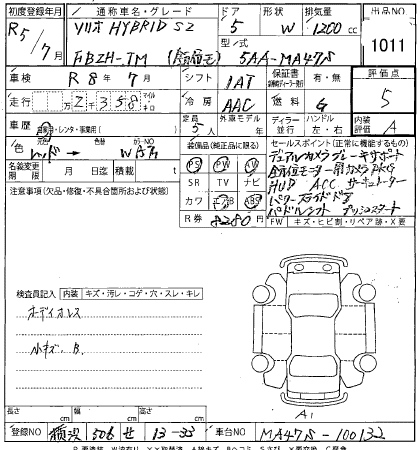 初度登録年月 通称車名・グレード ドア 形状 排気量 出品NO
R5/7月 ソリオ HYBRID SZ 5 W 1200cc 1011
型/式
5AA-MA47S
車検 R8年7月 シフト IAT 保証書 有・無 評価点
走行 マイル キロ 冷房 AAC 燃料 G 5
車歴 自家用・レンタ・事業用( ) 定員 5人 外車モデル 年 ディーラー 並行 ハンドル 左・右 内装 評価 A
色 カラーNO 装備品(純正品に限る) セールスポイント(正常に機能するもの)
PS PW AW デュアルカメラブレーキサポート
名義変更期限 月 日迄 積載 t SR TV ナビ 全方位モニター用カメラPKG
注意事項(欠品・修復・不具合箇所および状態) HUD ACC サーキュレーター
カワ ABS
R券 8280円 パドルシフト プッシュスタート
FW キズ・ヒビ割・リペア跡・X要
検査員記入 内装 キズ・汚レ・コゲ・穴・スレ・キレ
オーディオレス
小キズ B
A1
長さ cm 幅 cm 高さ cm
登録NO 横浜 506 せ 13-33 車台NO MA47S-100132